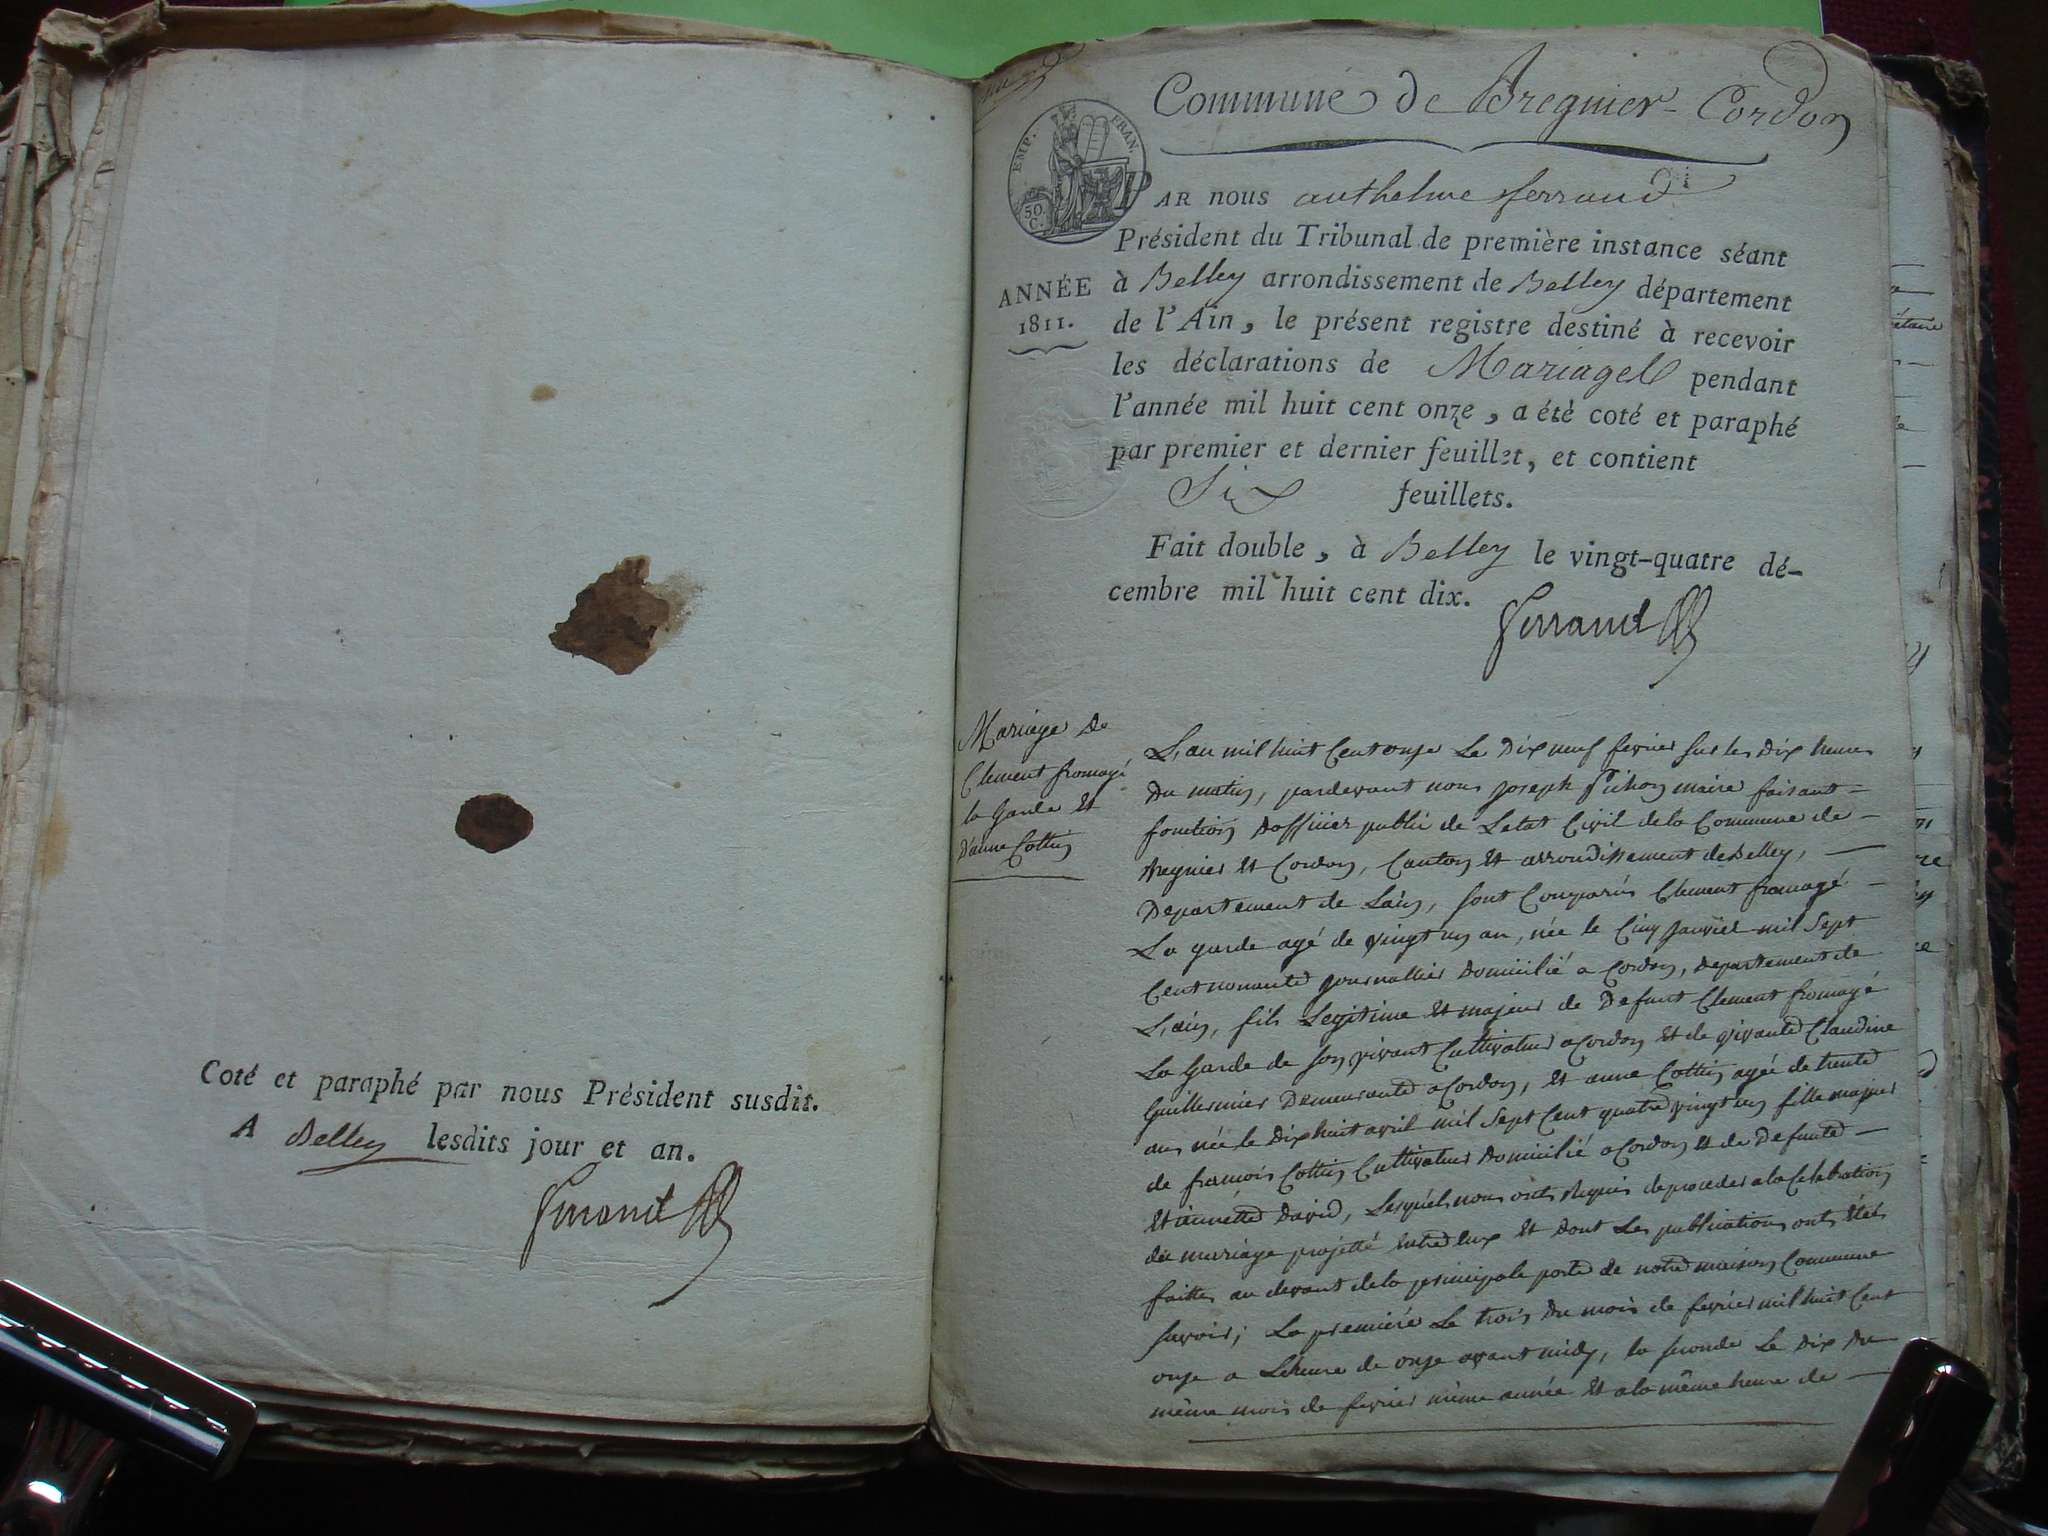 Coté et paraphé par nous Président susdit.
A Belley lesdits jour et an.
Ferrand
Commune de Bregnier-Cordon
EMP. FRAN.
50 C.
PAR nous anthelme ferrand
Président du Tribunal de première instance séant
ANNÉE
1811.
à Belley arrondissement de Belley département
de l'Ain, le présent registre destiné à recevoir
les déclarations de Mariages pendant
l'année mil huit cent onze, a été coté et paraphé
par premier et dernier feuillet, et contient
Six feuillets.
Fait double, à Belley le vingt-quatre dé-
cembre mil huit cent dix.
Ferrand
Mariage de
Clement fromagé
la Garde et
d'anne Cottin
L'an mil huit Cent onze Le dix neuf fevrier sur les dix heures
du matin, pardevant nous joseph Pichon maire faisant
fonction dofficier public de Letat Civil de la Commune de
Bregnier et Cordon, Canton et arrondissement de Belley,
Departement de Lain, sont Comparus Clement fromagé
La garde agé de vingt un an, née le Cinq janvier mil Sept
Cent nonante journallier domicilié a Cordon, departement de
L'ain, fils Legitime et majeur de Defunt Clement fromagé
La Garde de son vivant Cultivateur a Cordon et de vivante Claudine
Guillermier Demeurante a Cordon, et anne Cottin agée de trente
ans née le dix huit avril mil Sept Cent quatre vingt un fille majeur
de francois Cottin Cultivateur domicilié a Cordon et de Defunte
Etiennette David, Lesquels nous onts Requis de proceder a la Celebration
du mariage projetté entre eux et dont Les publications onts étés
faittes au devant de la principale porte de notre maison Commune
savoir; La premiere Le trois du mois de fevrier mil huit Cent
onze a Lheure de onze avant midy, la seconde Le dix du
même mois de fevrier même année et a la même heure de